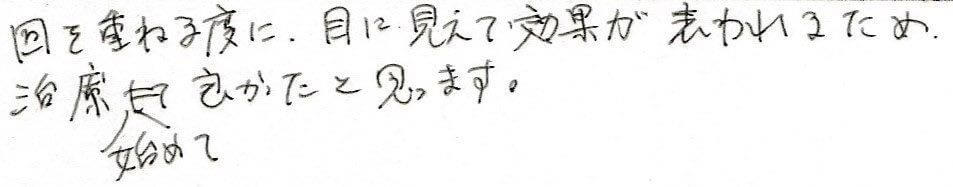 回を重ねる度に、目に見えて効果が表われるため、
治療始めて良かたと思います。